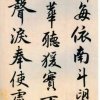 每依南斗望
華聽猿實下
聲淚奉使虛